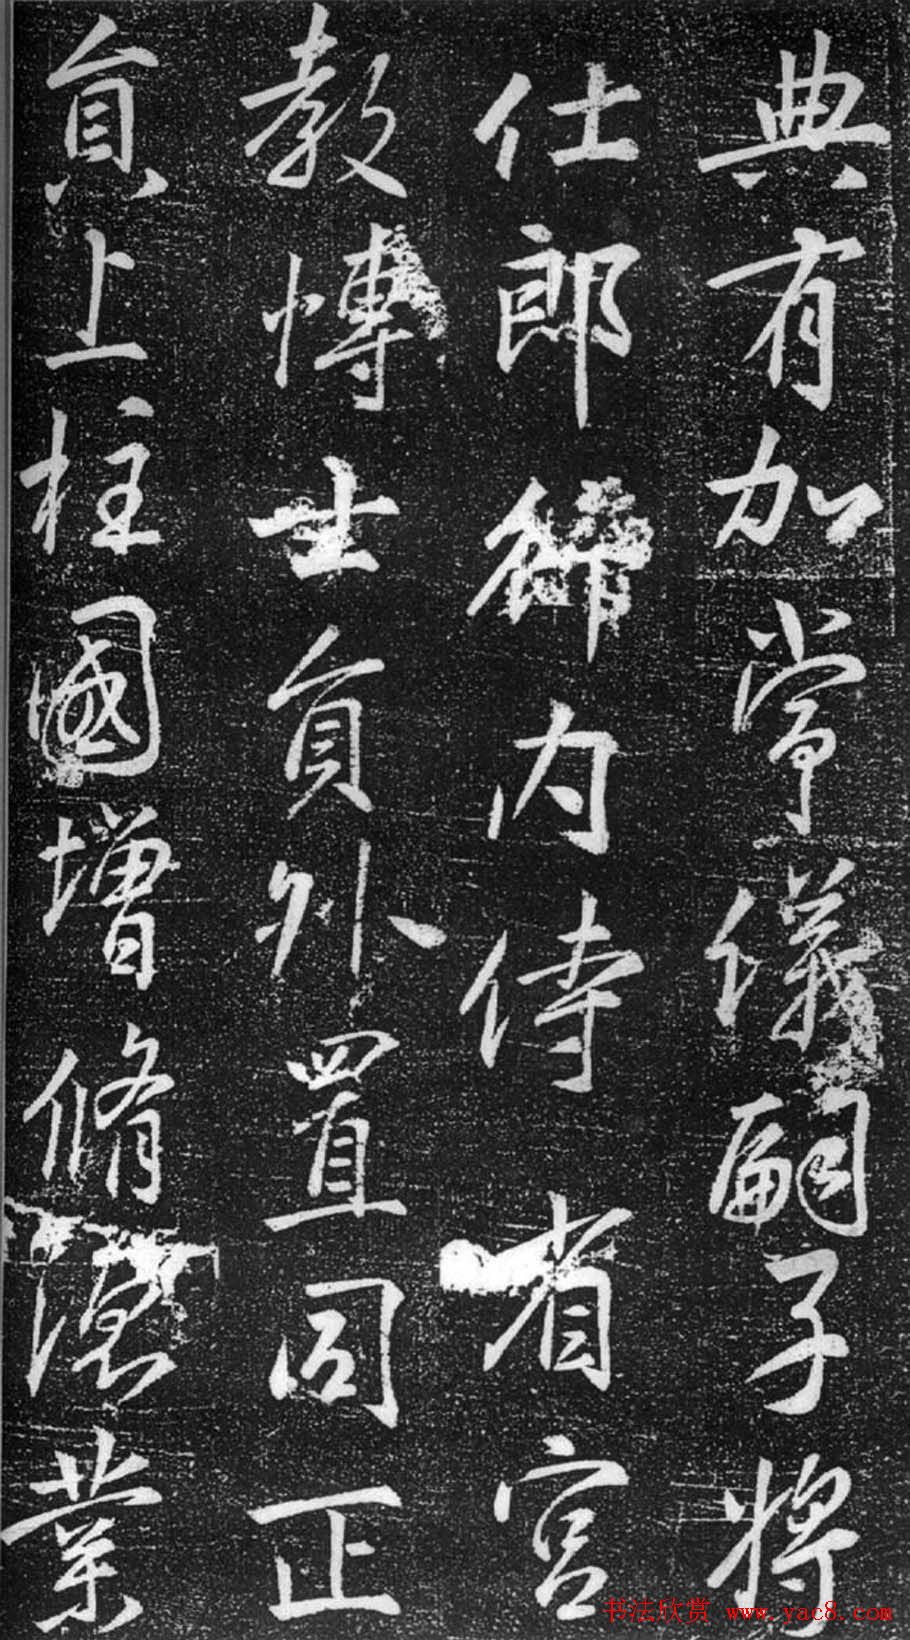 典有加常儀嗣子將
仕郎内侍省宮
教博士員外置同正
員上柱國增脩德業
书法欣赏 www.yac8.com